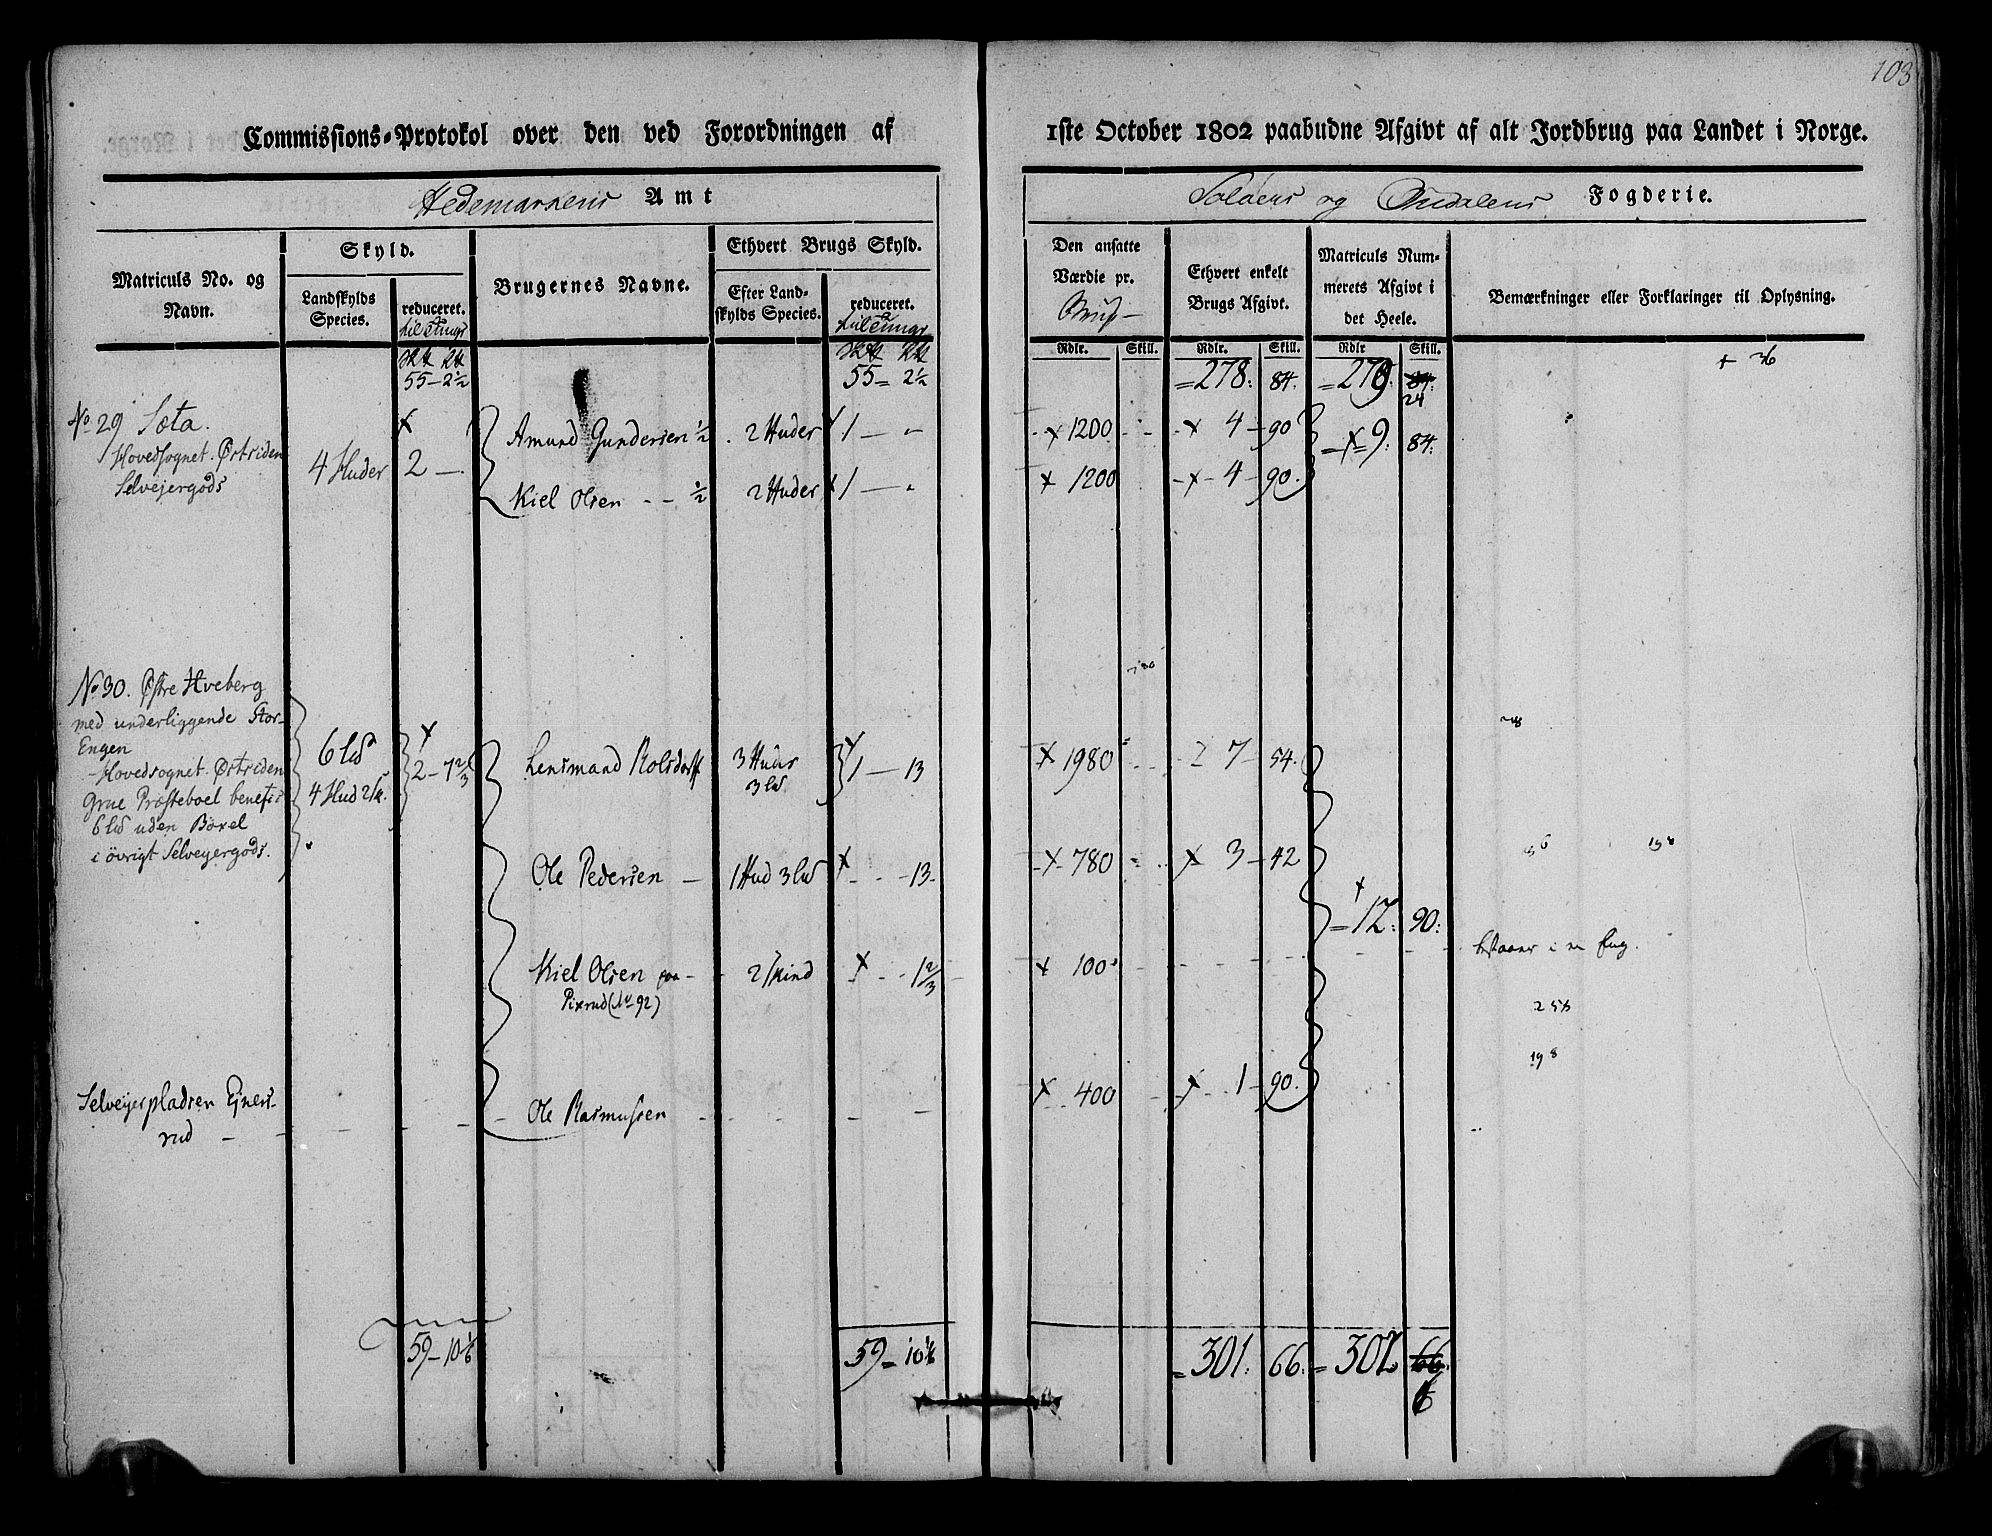 103
Commissions-Protokol over den ved Forordningen af
1ste October 1802 paabudne Afgivt af alt Jordbrug paa Landet i Norge.
Hedemarkens Amt
Soløens og Oudalens Fogderie.
Matriculs No. og Navn.
Skyld.
Landskylds Species.
reduceret.
Brugernes Navne.
Ethvert Brugs Skyld.
Efter Landskylds Species.
reduceret.
Den ansatte Værdie pr.
Brug
Ethvert enkelt Brugs Afgivt.
Matriculs Nummerets Afgivt i det Heele.
Bemærkninger eller Forklaringer til Oplysning.
Rdlr. Skill. Rdlr. Skill. Rdlr Skill.
55 - 2½ 55 = 2½ = 278: 84. = 279. 84: 24 + 36
No 29 Sæta.
Hovedsognet. Østsiden
Selvejergods
4 Huder 2 —
Amund Gundersen ½ . 2 Huder 1 — „ x 1200 x 4 - 90
Kiel Olsen - - ½ 2 Huder 1 — „ x 1200 x 4 - 90.
= x 9: 84:
No 30. Østre Hveberg
med underliggende Stor-
Engen
Hovedsognet. Østsiden
Grue Præsteboel benefic
6 lb uden Bøxel
i övrigt Selveyergods.
6 lb
4 Hud 2 sk.
2 - 7⅔
Lensmand Rolsdorff 3 Huus 3 lb. 1 — 13 x 1980 7 - 54.
Ole Pedersen — 1 Hud 3 lb x - - 13. x 780 x 3 - 42
= 12: 90:
Kiel Olsen paa 2 skind x - - 1⅔ x 100 i en Eng.
Pixrud (No 92)
256
198
Selveyerpladsen Ejners-
rud
Ole Rasmussen x 400 x 1 - 90.
59 - 10⅙ 59 = 10⅙ = 301: 66: = 302 66.
6